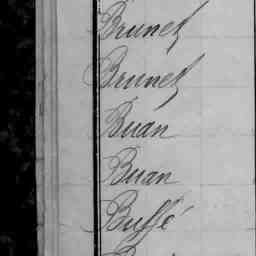 Brunet
Brunet
Buan
Buan
Buffé